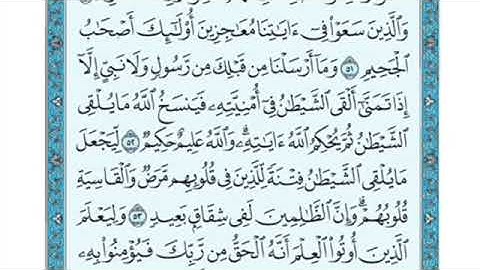 وَٱلَّذِينَ سَعَوْا۟ فِىٓ ءَايَٰتِنَا مُعَٰجِزِينَ أُو۟لَٰٓئِكَ أَصْحَٰبُ
ٱلْجَحِيمِ ٥١ وَمَآ أَرْسَلْنَا مِن قَبْلِكَ مِن رَّسُولٍ وَلَا نَبِىٍّ إِلَّآ
إِذَا تَمَنَّىٰٓ أَلْقَى ٱلشَّيْطَٰنُ فِىٓ أُمْنِيَّتِهِۦ فَيَنسَخُ ٱللَّهُ مَا يُلْقِى
ٱلشَّيْطَٰنُ ثُمَّ يُحْكِمُ ٱللَّهُ ءَايَٰتِهِۦ ۗ وَٱللَّهُ عَلِيمٌ حَكِيمٌ ٥٢ لِّيَجْعَلَ
مَا يُلْقِى ٱلشَّيْطَٰنُ فِتْنَةً لِّلَّذِينَ فِى قُلُوبِهِم مَّرَضٌ وَٱلْقَاسِيَةِ
قُلُوبُهُمْ ۗ وَإِنَّ ٱلظَّٰلِمِينَ لَفِى شِقَاقٍۭ بَعِيدٍ ٥٣ وَلِيَعْلَمَ
ٱلَّذِينَ أُوتُوا۟ ٱلْعِلْمَ أَنَّهُ ٱلْحَقُّ مِن رَّبِّكَ فَيُؤْمِنُوا۟ بِهِۦ